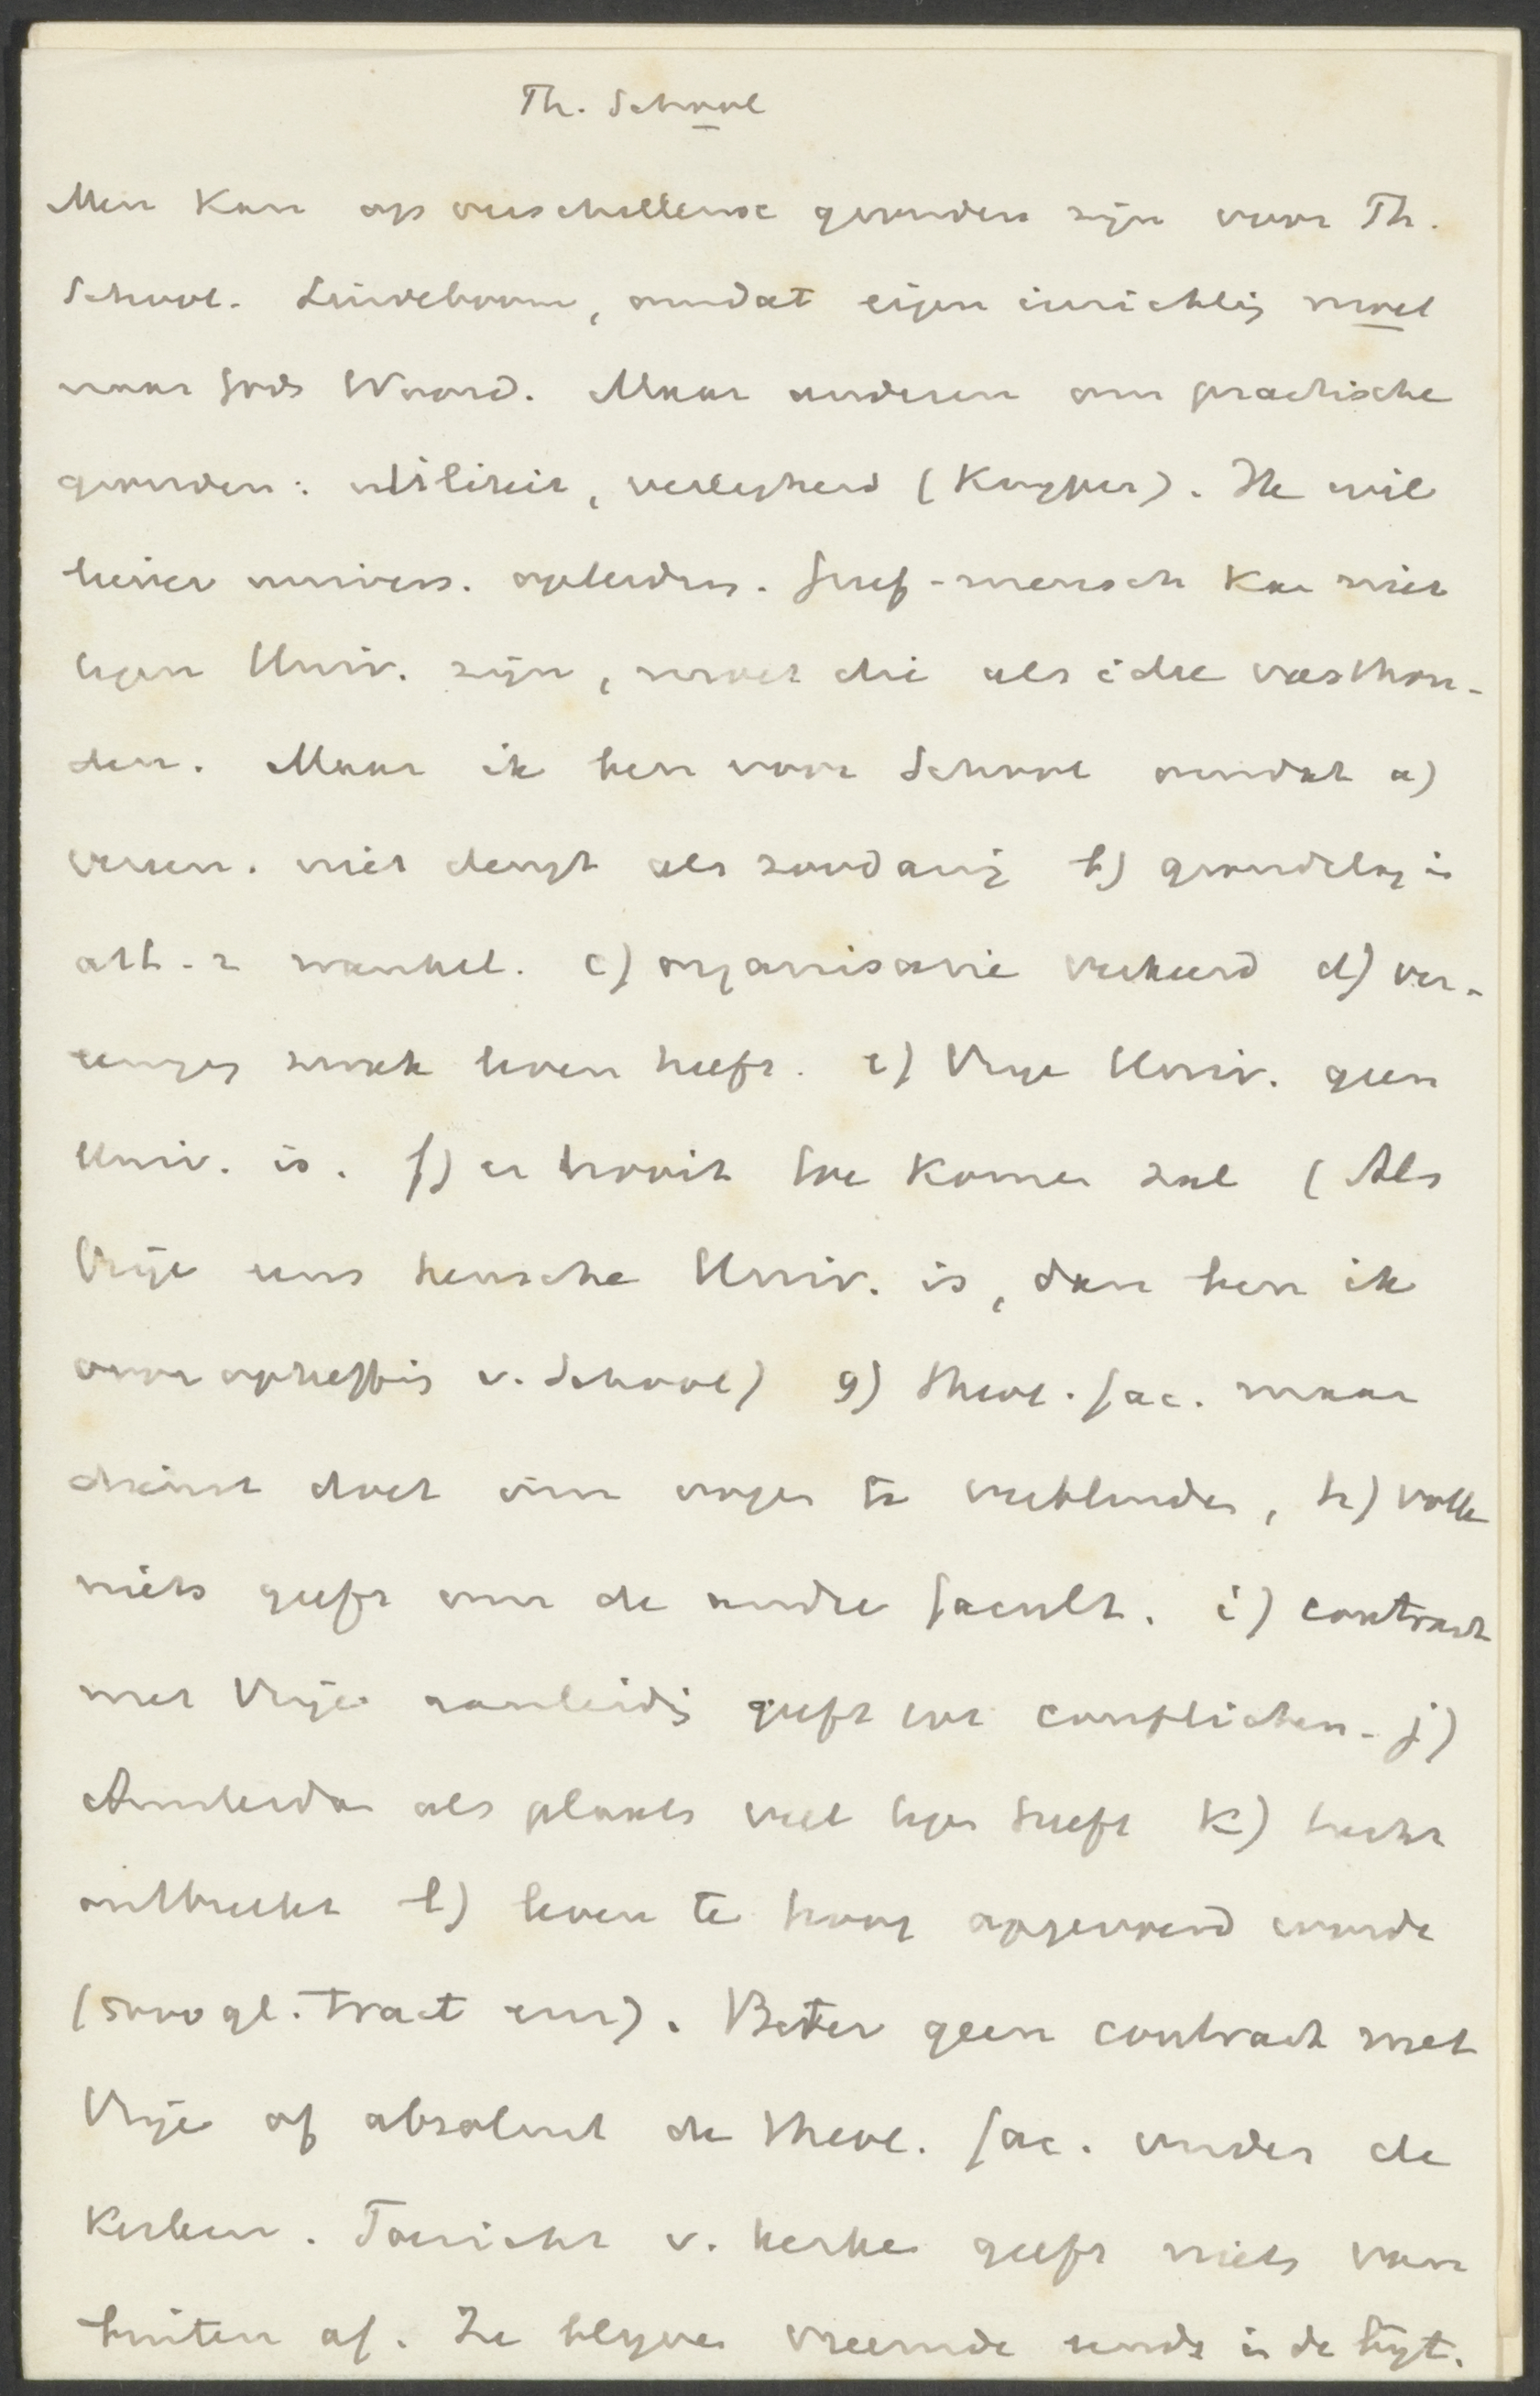 Th. School
Men kan op verschillende gronden zijn voor Th.
School. Lindeboom, omdat eigen inrichting moet
naar Gods Woord. Maar anderen om practische
gronden: utiliteit, veiligheid (Kuyper). Ik wil
liever univers. opleiding. Geref-mensch kan niet
tegen Univ. zijn, moet die als idee vasthou-
den. Maar ik ben voor School omdat a)
vereen. niet deugt als zoodanig b) grondslag is
art. 2 wankel. c) organisatie verkeerd d) ver-
eeniging zwak leven heeft. e) Vrije Univ. geen
Univ. is. f) er nooit toe komen zal (Als
Vrije eens heusche Univ. is, dan ben ik
voor opheffing v. School) g) theol. fac. maar
dienst doet om oogen te verblinden, h) volk
niets geeft om de andre facult. i) contract
met Vrije aanleiding geeft tot conflicten. j)
Amsterdam als plaats veel tegen heeft k) tucht
ontbreekt l) leven te hoog opgevoerd worde
(5000 gl. tract enz). Beter geen contract met
Vrije of absoluut de theol. fac. onder de
Kerken. Toezicht v. kerken geeft niets van
buiten af. Ze blyven vreemde eends in de byt.